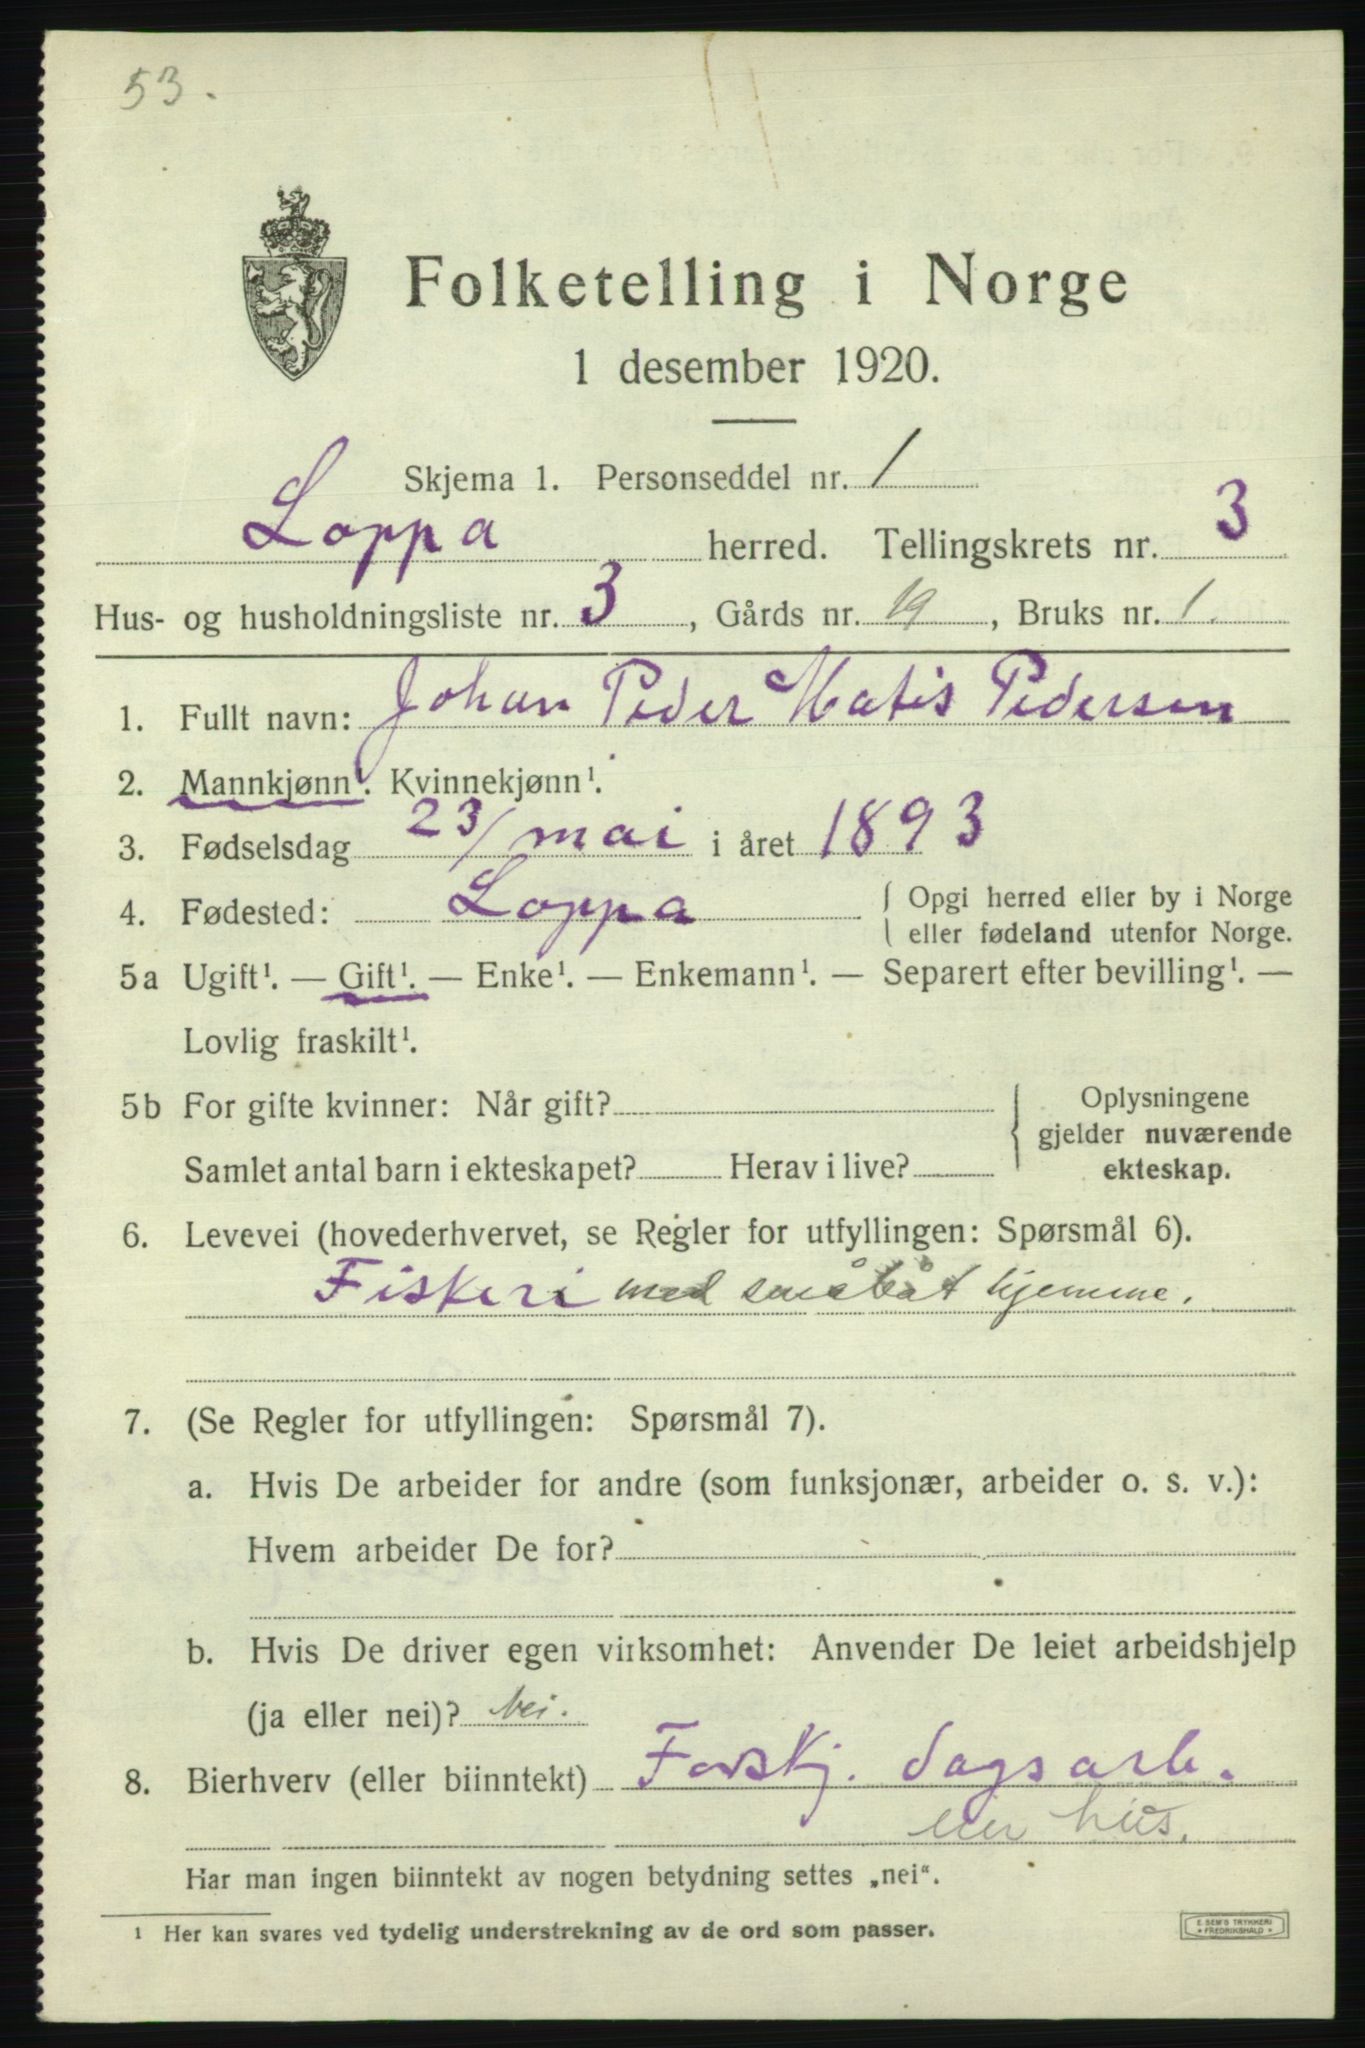 53.
Folketelling i Norge
1 desember 1920.
Skjema 1. Personseddel nr. 1
Loppa herred. Tellingskrets nr. 3
Hus- og husholdningsliste nr. 3, Gårds nr. 19, Bruks nr. 1.
1. Fullt navn: Johan Peder Matis Pedersen
2. Mannkjønn¹. Kvinnekjønn¹.
3. Fødselsdag 23/ mai i året 1893
4. Fødested: Loppa { Opgi herred eller by i Norge
eller fødeland utenfor Norge.
5a Ugift¹. — Gift¹. — Enke¹. — Enkemann¹. — Separert efter bevilling¹. —
Lovlig fraskilt¹.
5b For gifte kvinner: Når gift? { Oplysningene
gjelder nuværende
Samlet antal barn i ekteskapet? Herav i live? ekteskap.
6. Levevei (hovederhvervet, se Regler for utfyllingen: Spørsmål 6).
Fiskeri med småbåt hjemme.
7. (Se Regler for utfyllingen: Spørsmål 7).
a. Hvis De arbeider for andre (som funksjonær, arbeider o. s. v.):
Hvem arbeider De for?
b. Hvis De driver egen virksomhet: Anvender De leiet arbeidshjelp
(ja eller nei)? Nei.
8. Bierhverv (eller biinntekt) Forskj. dagsarb.
eier hus.
Har man ingen biinntekt av nogen betydning settes „nei“.
¹ Her kan svares ved tydelig understrekning av de ord som passer.
E. SEM'S TRYKKERI
FREDRIKSHALD